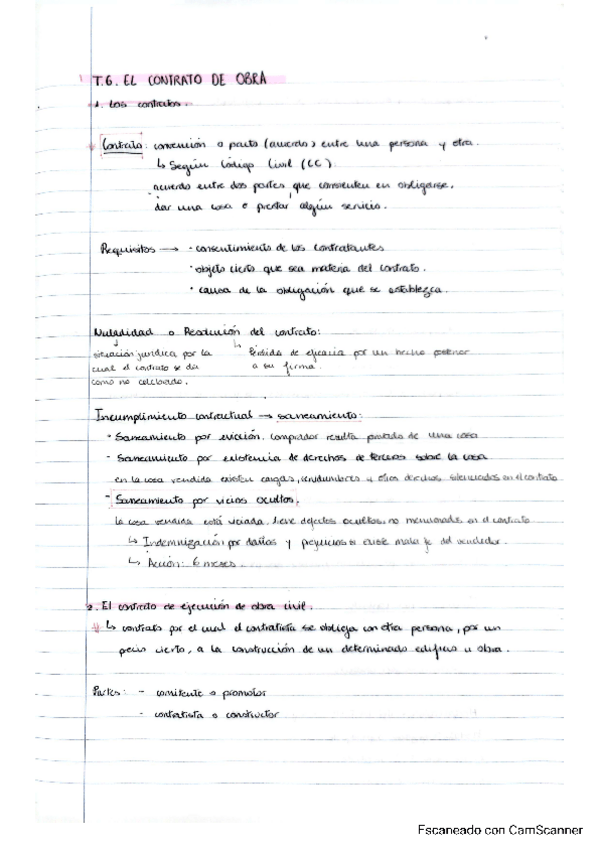 T.6. EL CONTRATO DE OBRA
1. Los contratos.
Contrato: convención o pacto (acuerdo) entre una persona y otra.
↳ Según Código Civil (CC)
acuerdo entre dos partes que consienten en obligarse,
dar una cosa o prestar algún servicio.
Requisitos → · consentimiento de los contratantes
· objeto cierto que sea materia del contrato.
· causa de la obligación que se establezca.
o Resolución del contrato:
situación jurídica por la ↳ Pérdida de eficacia por un hecho posterior
cual el contrato se da a su firma.
como no celebrado.
Incumplimiento contractual → saneamiento:
· Saneamiento por evicción. comprador resulta privado de una cosa
· Saneamiento por existencia de derechos de terceros sobre la cosa
en la cosa vendida existen cargas, servidumbres u otros derechos silenciados en el contrato
· Saneamiento por vicios ocultos.
la cosa vendida está viciada, tiene defectos ocultos, no mencionados en el contrato
↳ Indemnización por daños y perjuicios si existe mala fe del vendedor.
↳ Acción: 6 meses.
2. El contrato de ejecución de obra civil.
↳ contrato por el cual el contratista se obliga con otra persona, por un
precio cierto, a la construcción de un determinado edificio u obra.
Partes: - comitente o promotor
- contratista o constructor
Escaneado con CamScanner